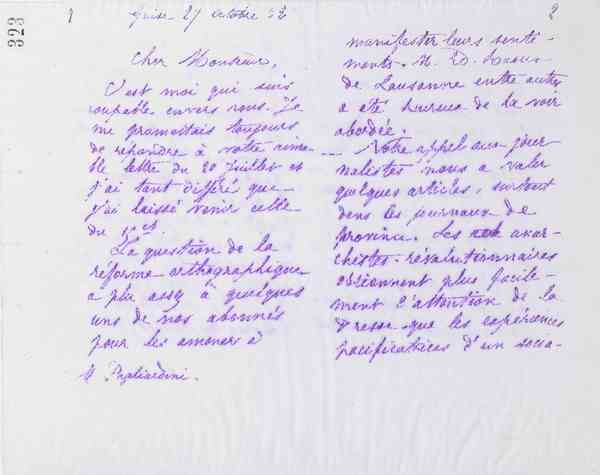 323
1
Guise 27 octobre 82
Cher Monsieur,
C'est moi qui suis
coupable envers vous. Je
me promettais toujours
de répondre à votre aima-
ble lettre du 20 Juillet et
j'ai tant différé que
j'ai laissé venir celle
du
La question de la
réforme orthographique
a plu assez à quelques
uns de nos abonnés
pour les amener à
M. Pagliardini.
2
manifester leurs senti-
ments. M. Ed.
de Lausanne entre autres
a été heureux de la voir
abordée.
Votre appel aux jour-
nalistes nous a valu
quelques articles, surtout
dans les journaux de
province. Les anar-
chistes révolutionnaires
obtiennent plus facile-
ment l'attention de la
Presse que les expériences
pacificatrices d'un socia-